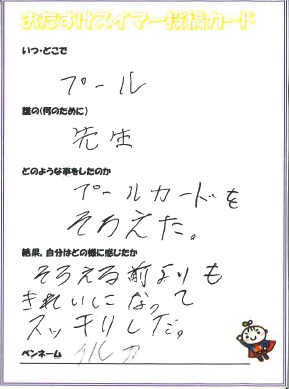 おたすけスイマー投稿カード
いつ・どこで
プール
誰の(何のために)
先生
どのような事をしたのか
プールカードを
そろえた。
結果、自分はどの様に感じたか
そろえる前よりも
きれいになって
スッキリした。
ペンネーム
イルカ